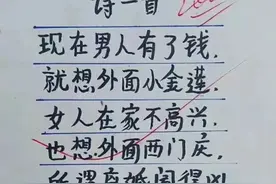 诗一首
现在男人有了钱.
就想外面小金莲.
女人在家不高兴.
也想外面西门庆.
所谓离婚闹得凶